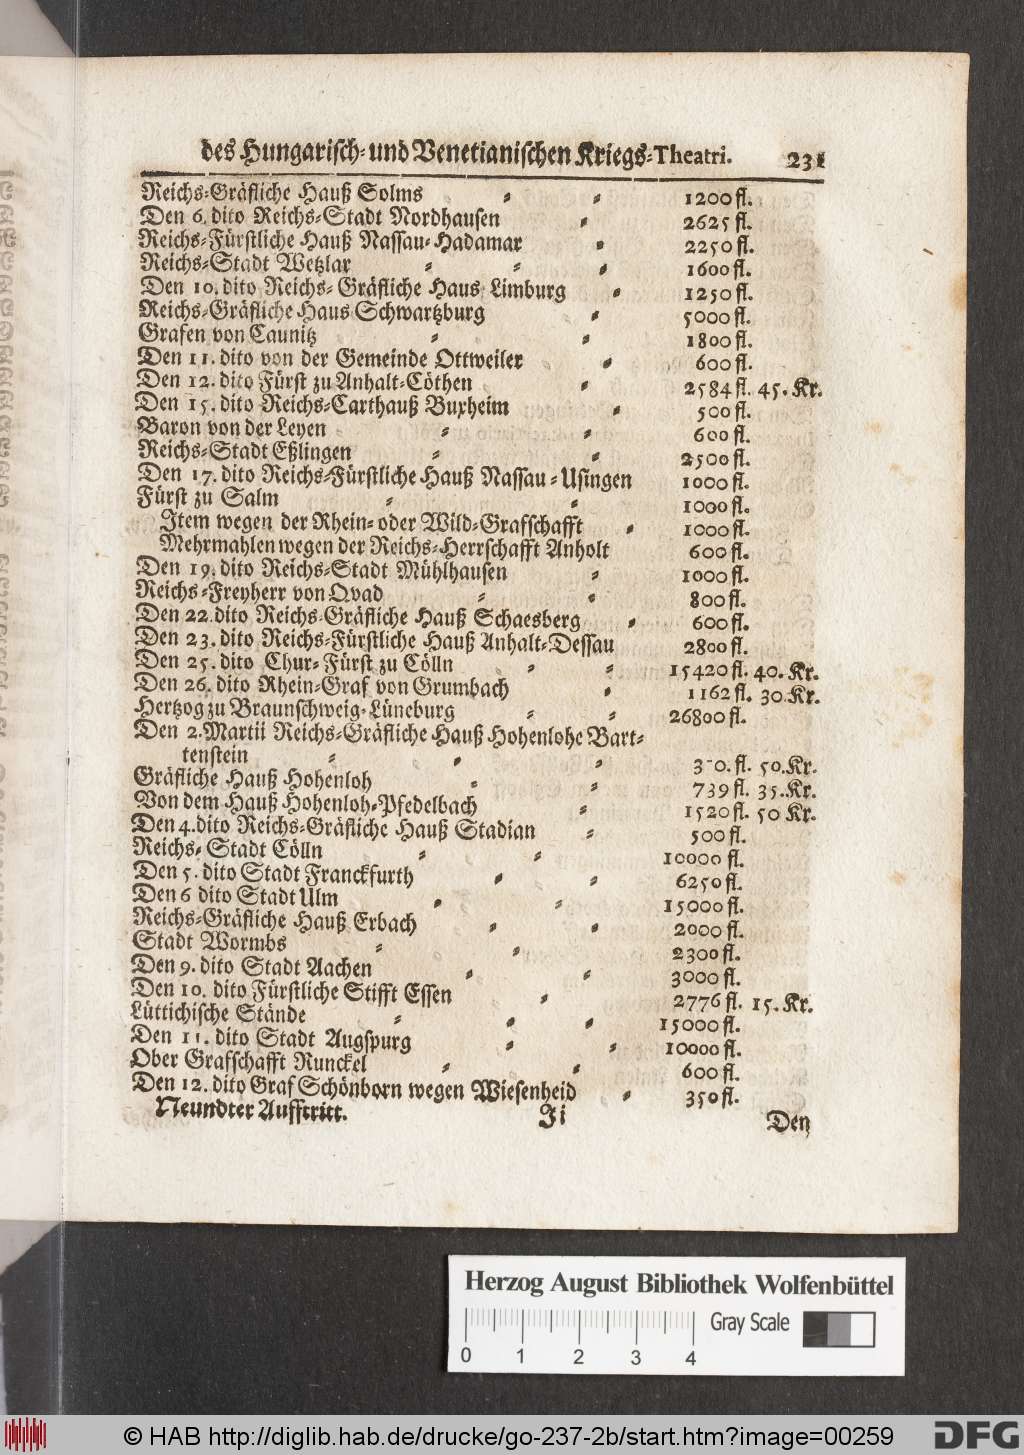 des Hungarisch- und Venetianischen Kriegs-Theatri. 231
Reichs-Gräfliche Hauß Solms 1200 fl.
Den 6. dito Reichs-Stadt Nordhausen 2625 fl.
Reichs-Fürstliche Hauß Nassau-Hadamar 2250 fl.
Reichs-Stadt Wetzlar 1600 fl.
Den 10. dito Reichs-Gräfliche Haus Limburg 1250 fl.
Reichs-Gräfliche Haus Schwartzburg 5000 fl.
Grafen von Caunitz 1800 fl.
Den 11. dito von der Gemeinde Ottweiler 600 fl.
Den 12. dito Fürst zu Anhalt-Cöthen 2584 fl. 45. Kr.
Den 15. dito Reichs-Carthauß Buxheim 500 fl.
Baron von der Leyen 600 fl.
Reichs-Stadt Eßlingen 2500 fl.
Den 17. dito Reichs-Fürstliche Hauß Nassau-Usingen 1000 fl.
Fürst zu Salm 1000 fl.
Item wegen der Rhein- oder Wild-Grafschafft 1000 fl.
Mehrmahlen wegen der Reichs-Herrschafft Anholt 600 fl.
Den 19. dito Reichs-Stadt Mühlhausen 1000 fl.
Reichs-Freyherr von Qvad 800 fl.
Den 22. dito Reichs-Gräfliche Hauß Schaesberg 600 fl.
Den 23. dito Reichs-Fürstliche Hauß Anhalt-Dessau 2800 fl.
Den 25. dito Chur-Fürst zu Cölln 15420 fl. 40. Kr.
Den 26. dito Rhein-Graf von Grumbach 1162 fl. 30. Kr.
Hertzog zu Braunschweig-Lüneburg 26800 fl.
Den 2. Martii Reichs-Gräfliche Hauß Hohenlohe Bart-
tenstein fl. 50. Kr.
Gräfliche Hauß Hohenloh 739 fl. 35. Kr.
Von dem Hauß Hohenloh-Pfedelbach 1520 fl. 50 Kr.
Den 4. dito Reichs-Gräfliche Hauß Stadian 500 fl.
Reichs-Stadt Cölln 10000 fl.
Den 5. dito Stadt Franckfurth 6250 fl.
Den 6 dito Stadt Ulm 15000 fl.
Reichs-Gräfliche Hauß Erbach 2000 fl.
Stadt Wormbs 2300 fl.
Den 9. dito Stadt Aachen 3000 fl.
Den 10. dito Fürstliche Stifft Essen 2776 fl. 15. Kr.
Lüttichische Stände 15000 fl.
Den 11. dito Stadt Augspurg 10000 fl.
Ober Grafschafft Runckel 600 fl.
Den 12. dito Graf Schönborn wegen Wiesenheid 350 fl.
Neundter Aufftritt. Ii Den
Herzog August Bibliothek Wolfenbüttel
Gray Scale
0 1 2 3 4
© HAB http://diglib.hab.de/drucke/go-237-2b/start.htm?image=00259
DFG